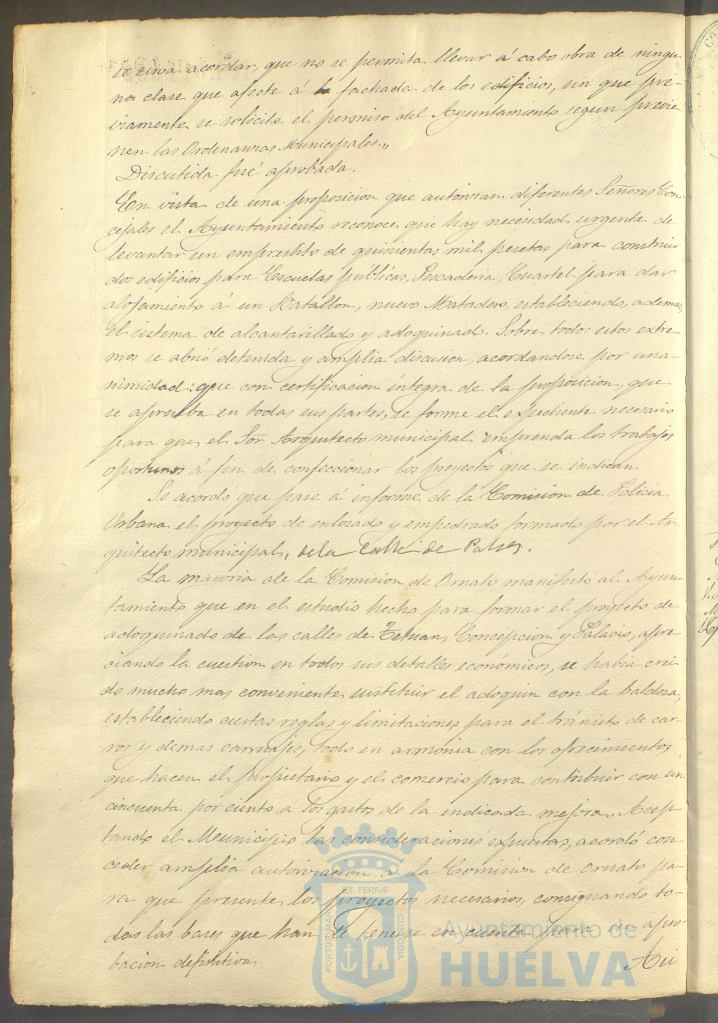 se sirva acordar, que no se permita llevar á cabo obra de ningu-
na clase que afecte á la fachada de los edificios, sin que pré-
viamente se solicite el permiso del Ayuntamiento segun previe-
nen las Ordenanzas Municipales.„
Discutida fué aprobada.
En vista de una proposicion que autorizan diferentes Señores Con-
cejales el Ayuntamiento reconoce que hay necesidad urgente de
levantar un emprestito de quinientas mil pesetas para construir
dos edificios para Escuelas publicas, Pescaderia, Cuartel para dar
alojamiento á un Batallon, nuevo Matadero, estableciendo, ademas,
el sistema de alcantarillado y adoquinado. Sobre todos estos extre-
mos se abrió detenida y amplia discusion, acordandose por una-
nimidad: que con certificacion integra de la proposicion, que
se aprueba en todas sus partes, se forme el expediente necesario
para que el Sor Arquitecto municipal emprenda los trabajos
oportunos á fin de confeccionar los proyectos que se indican.
Se acordó que pase á informe de la Comision de Policia
Urbana el proyecto de enlozado y empedrado formado por el Ar-
quitecto municipal, de la Calle de Palos.
La mayoria de la Comision de Ornato manifestó al Ayun-
tamiento que en el estudio hecho para formar el proyecto de
adoquinado de las calles de Tetuan, Concepcion y Palacio, apre-
ciando la cuestion en todos sus detalles económicos, se habia crei-
do mucho mas conveniente sustituir el adoquin con la baldosa,
estableciendo ciertas reglas y limitaciones para el tránsito de car-
ros y demas carruajes, todo en armonia con los ofrecimientos
que hacen el propietario y el comercio para contribuir con un
cincuenta por ciento á los gastos de la indicada mejora. Acep-
tando el Municipio las consideraciones expuestas, acordó con-
ceder amplia autorizacion á la Comision de Ornato pa-
ra que presente los proyectos necesarios, consignando to-
das las bases que han de tenerse en cuenta para su apro-
bacion definitiva.
Asi
PORTUS MARIS ET TERRÆ CUSTODIA
Ayuntamiento de
HUELVA